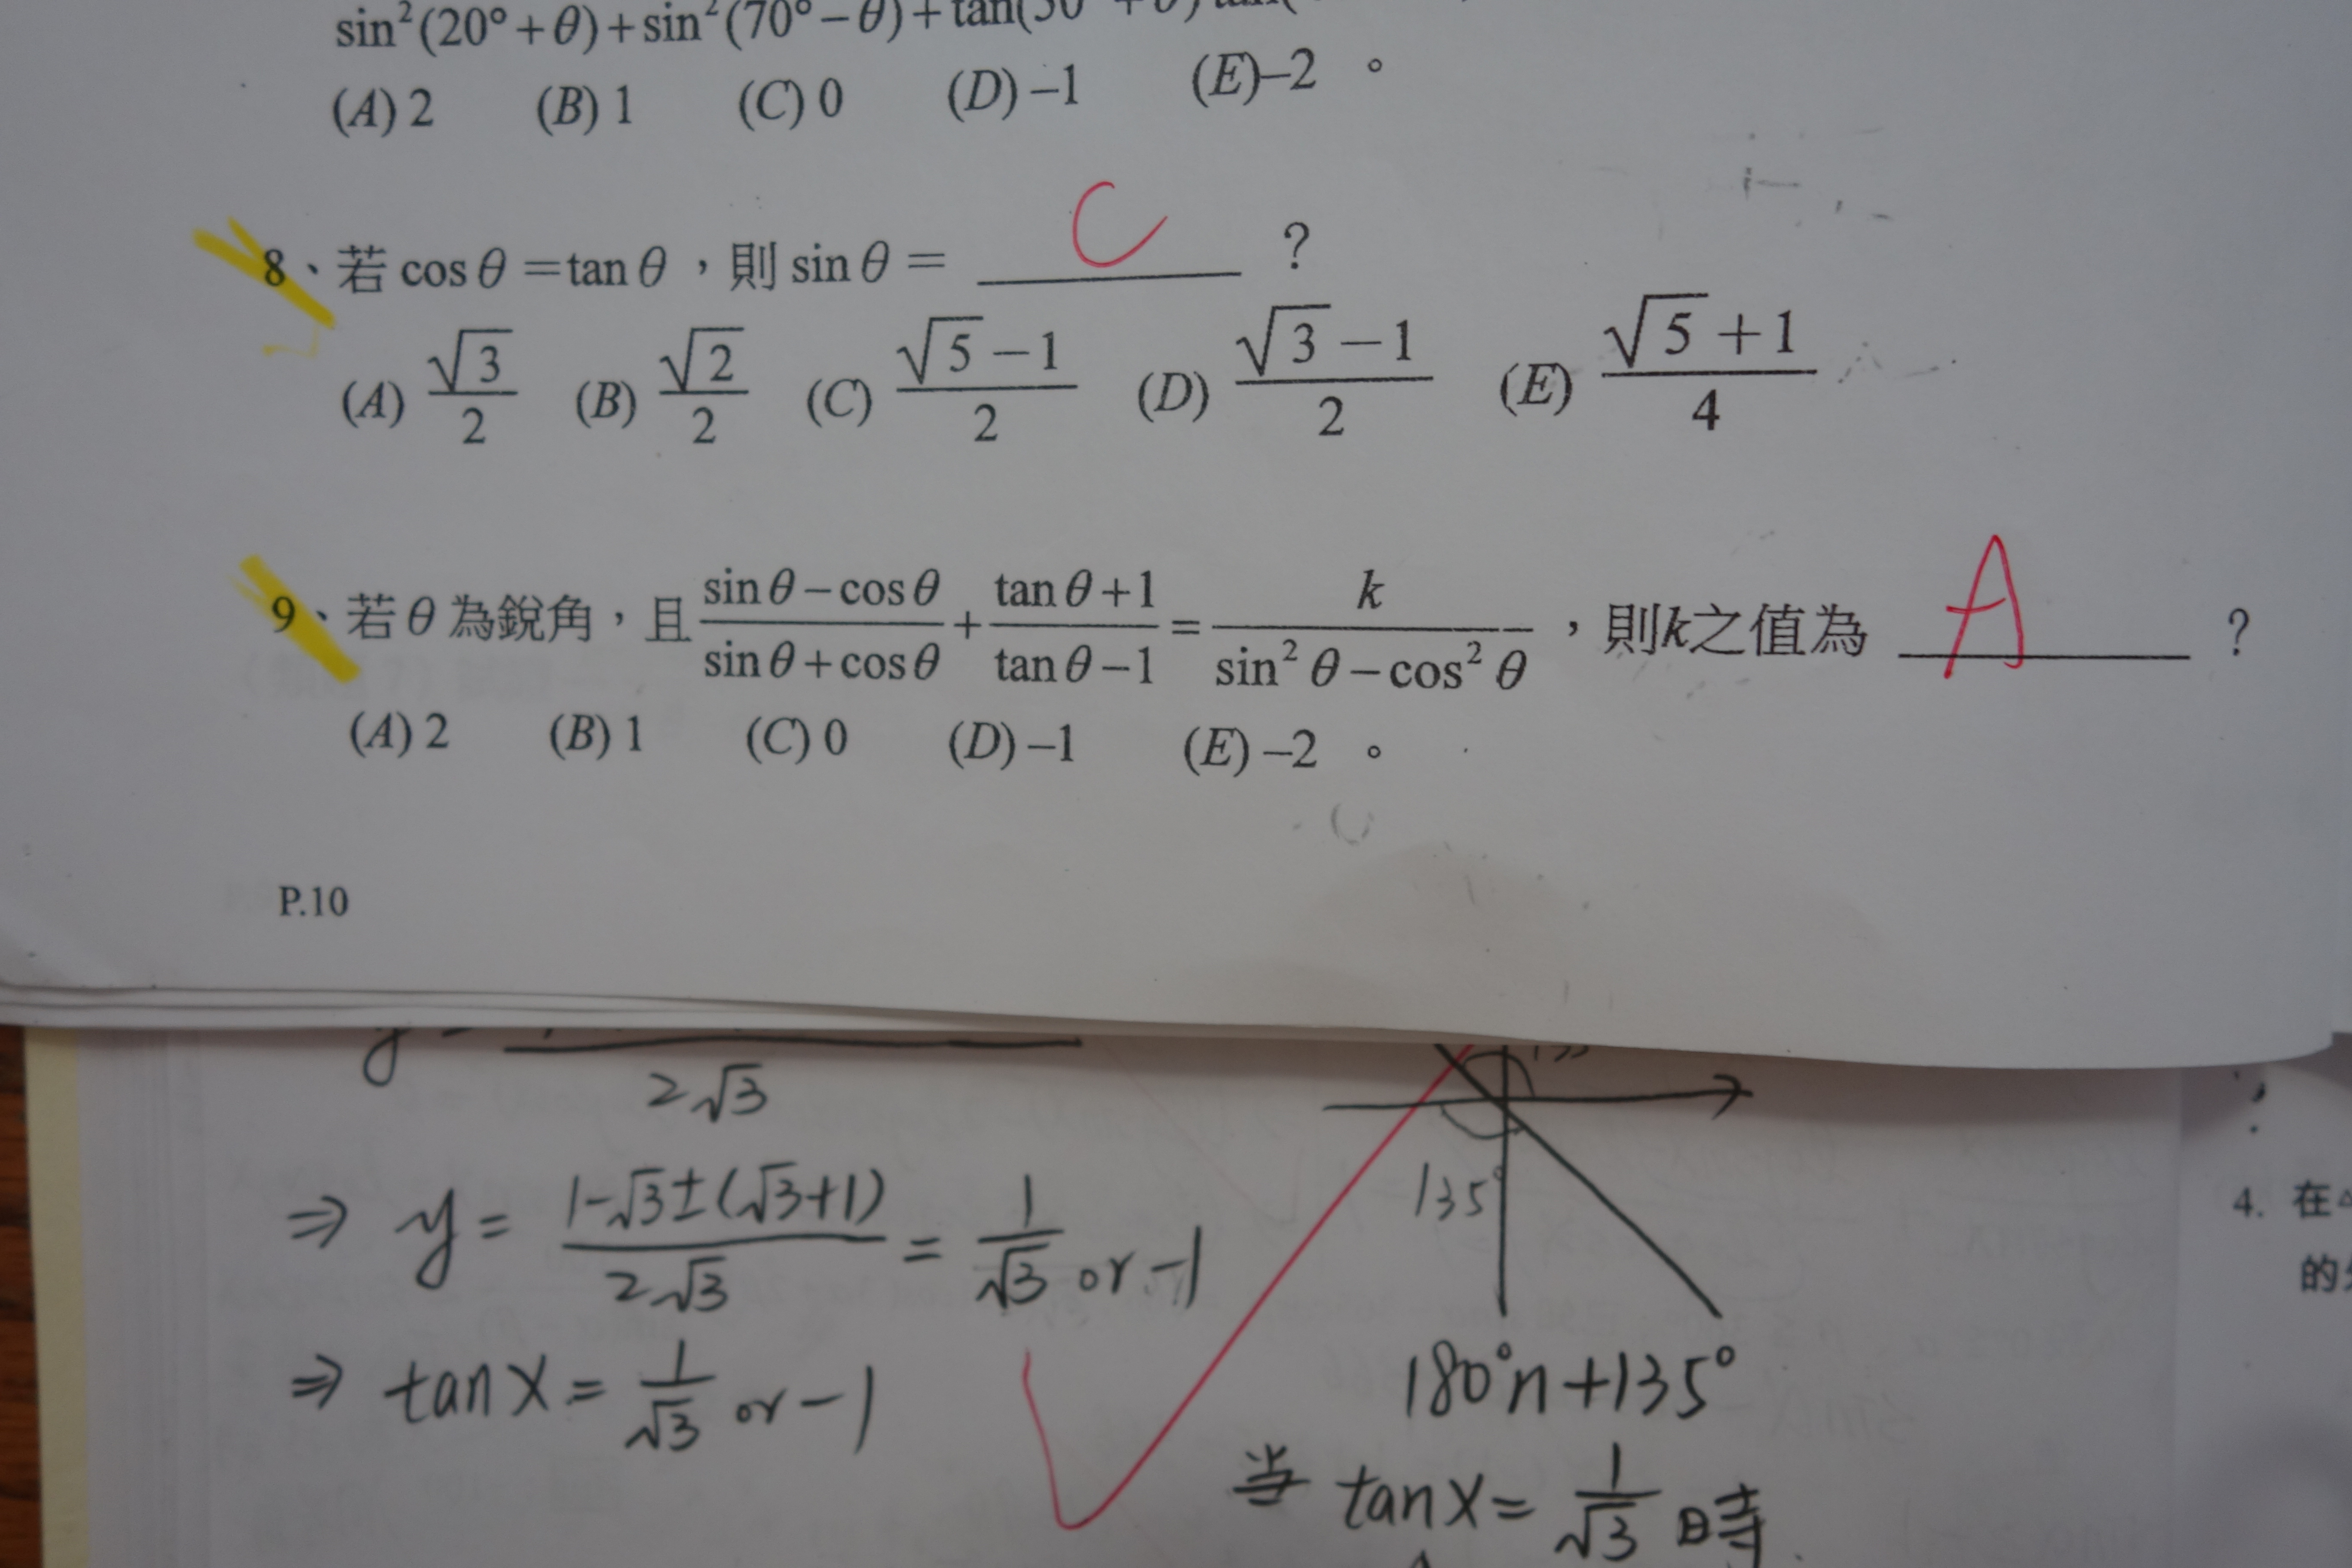 sin²(20°+θ)+sin²(70°−θ)+tan(50°+θ)
(A) 2 (B) 1 (C) 0 (D) −1 (E)−2 。
8、若 cosθ =tanθ ，則 sinθ = C ?
(A) √3/2 (B) √2/2 (C) (√5−1)/2 (D) (√3−1)/2 (E) (√5+1)/4
9、若θ為銳角，且 (sinθ−cosθ)/(sinθ+cosθ) + (tanθ+1)/(tanθ−1) = k/(sin²θ−cos²θ) ，則k之值為 A ?
(A) 2 (B) 1 (C) 0 (D) −1 (E) −2 。
P.10
2√3
⇒ y = (1−√3±(√3+1))/(2√3) = 1/√3 or −1
135°
⇒ tanx = 1/√3 or −1
180°n+135°
当 tanx = 1/√3 時
4. 在
的